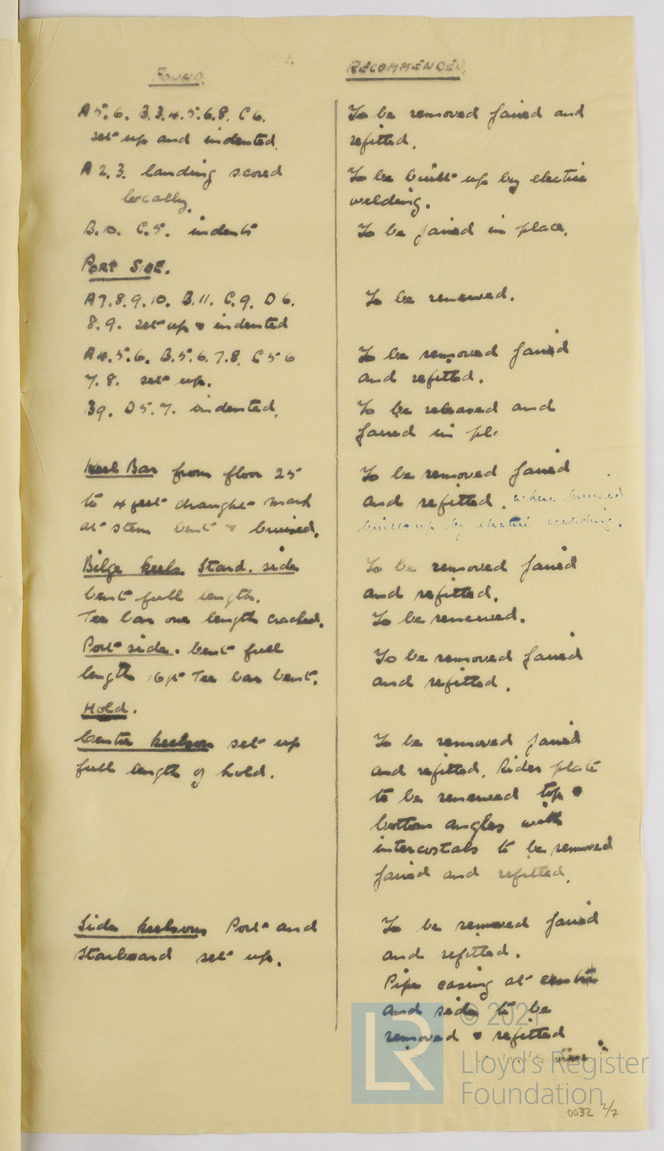 FOUND.
RECOMMENDED.
A 5. 6. B. 3. 4. 5. 6. 8. C 6.
set up and indented.
To be removed faired and
refitted.
A 2. 3. landing scored
locally.
To be built up by electric
welding.
B. 10. C. 5. indents
To be faired in place.
PORT SIDE.
A 7. 8. 9. 10. B. 11. C. 9. D 6.
8. 9. set up & indented
To be renewed.
A 4. 5. 6. B. 5. 6. 7. 8. C 5 6
7. 8. set up.
To be removed faired
and refitted.
B 9. D 5. 7. indented.
To be released and
faired in pl.
Keel Bar from floor 25
to 4 feet draught mark
at stem bent & bruised.
To be removed faired
and refitted. where bruised
built up by electric welding.
Bilge keels Starbd. side
bent full length.
Tee bar one length cracked.
To be removed faired
and refitted.
To be renewed.
Port side. bent full
length 6ft Tee bar bent.
To be removed faired
and refitted.
Hold.
Centre keelson set up
full length of hold.
To be removed faired
and refitted. Rider plate
to be renewed top &
bottom angles with
intercostals to be removed
faired and refitted.
Side keelsons Port and
Starboard set up.
To be removed faired
and refitted.
Pipe casing at centre
and side to be
removed & refitted
© 2021
Lloyd's Register
Foundation
LR
0032 2/7